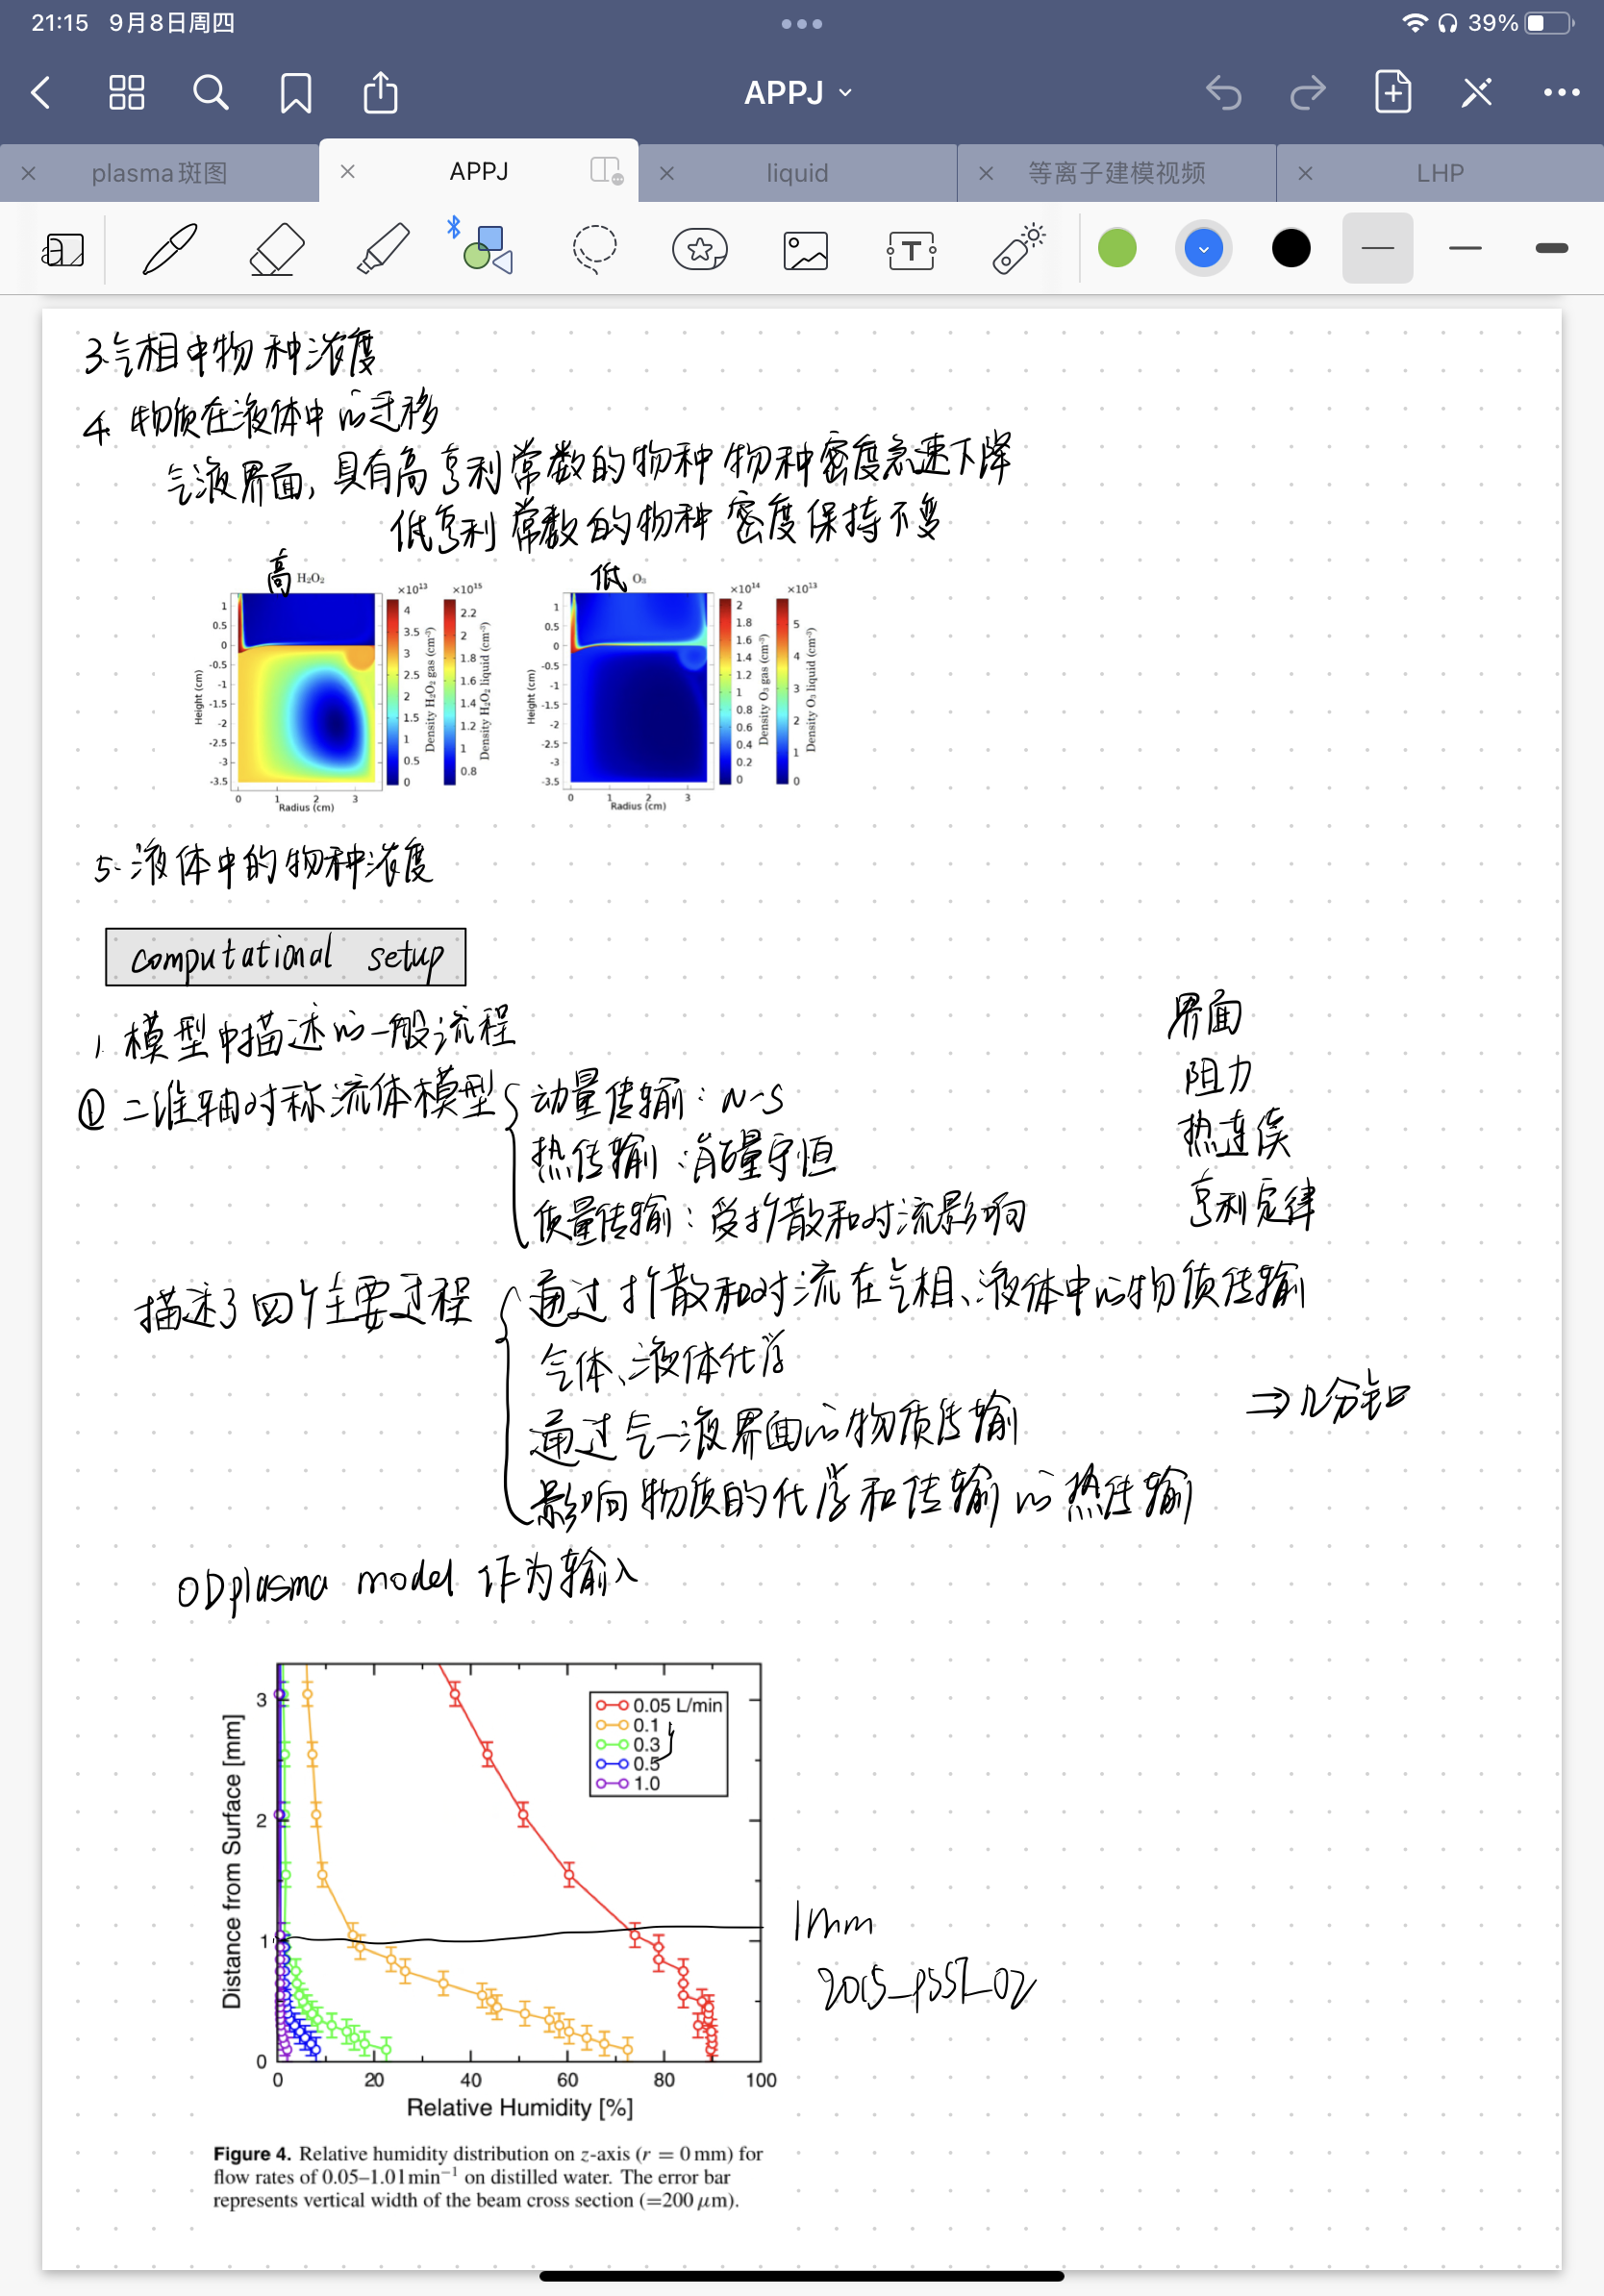 21:15 9月8日周四
39%
APPJ
plasma斑图
APPJ
liquid
等离子建模视频
LHP
3.气相中物种浓度
4. 物质在液体中的迁移
气液界面,具有高亨利常数的物种 物种密度急速下降
低亨利常数的物种 密度保持不变
高 H₂O₂
×10¹³ ×10¹⁵
1
0.5
0
-0.5
-1
-1.5
-2
-2.5
-3
-3.5
Height (cm)
0 1 2 3
Radius (cm)
4
3.5
3
2.5
2
1.5
1
0.5
0
Density H₂O₂ gas (cm⁻³)
2.2
2
1.8
1.6
1.4
1.2
1
0.8
Density H₂O₂ liquid (cm⁻³)
低 O₃
×10¹⁴ ×10¹³
1
0.5
0
-0.5
-1
-1.5
-2
-2.5
-3
-3.5
Height (cm)
0 1 2 3
Radius (cm)
2
1.8
1.6
1.4
1.2
1
0.8
0.6
0.4
0.2
0
Density O₃ gas (cm⁻³)
5
4
3
2
1
0
Density O₃ liquid (cm⁻³)
5. 液体中的物种浓度
computational setup
1. 模型中描述的一般流程
① 二维轴对称流体模型
动量传输:N-S
热传输:能量守恒
质量传输:受扩散和对流影响
界面
阻力
热连续
亨利定律
描述了四个主要过程
通过扩散和对流在气相、液体中的物质传输
气体、液体化学
通过气-液界面的物质传输
⇒几分钟
影响物质的化学和传输的热传输
0Dplasma model 作为输入
3
2
1
0
Distance from Surface [mm]
0.05 L/min
0.1
0.3
0.5
1.0
0 20 40 60 80 100
Relative Humidity [%]
1mm
2015_PSST_02
Figure 4. Relative humidity distribution on z-axis (r = 0 mm) for
flow rates of 0.05–1.01 min⁻¹ on distilled water. The error bar
represents vertical width of the beam cross section (=200 μm).